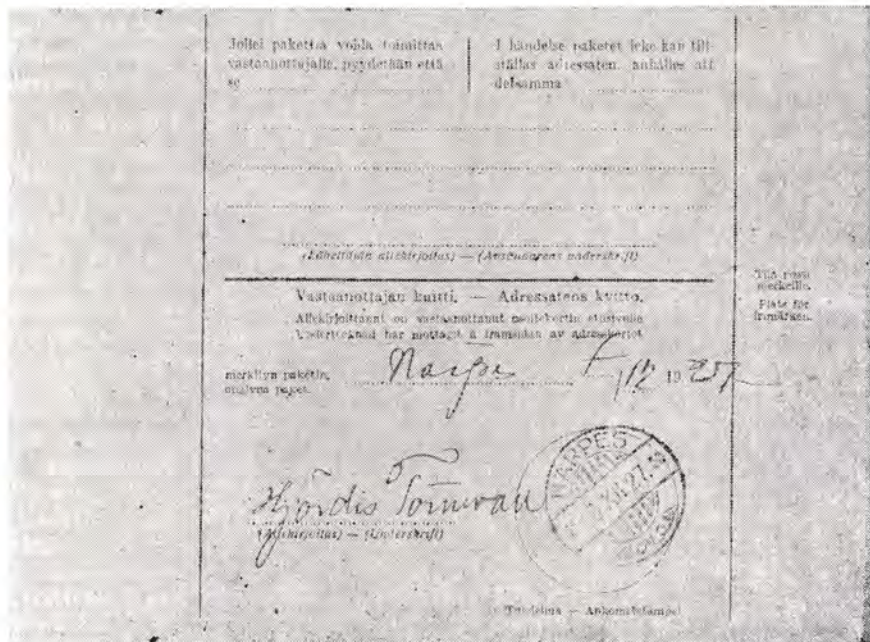 Jollei pakettia voida toimittaa
vastaanottajalle, pyydetään että
se
I händelse paketet icke kan till-
ställas adressaten, anhålles att
detsamma
(Lähettäjän allekirjoitus) — (Avsändarens underskrift)
Vastaanottajan kuitti. — Adressatens kvitto.
Allekirjoittanut on vastaanottanut osoitekortin etusivulla
Undertecknad har mottagit å framsidan av adresskortet
merkityn paketin,
angivna paket.
7/12 1927
Hjördis
(Allekirjoitus) — (Underskrift)
NÄRPES
XII.27
Tuloleima — Ankomststämpel
Tila posti-
merkeille.
Plats för
frimärken.